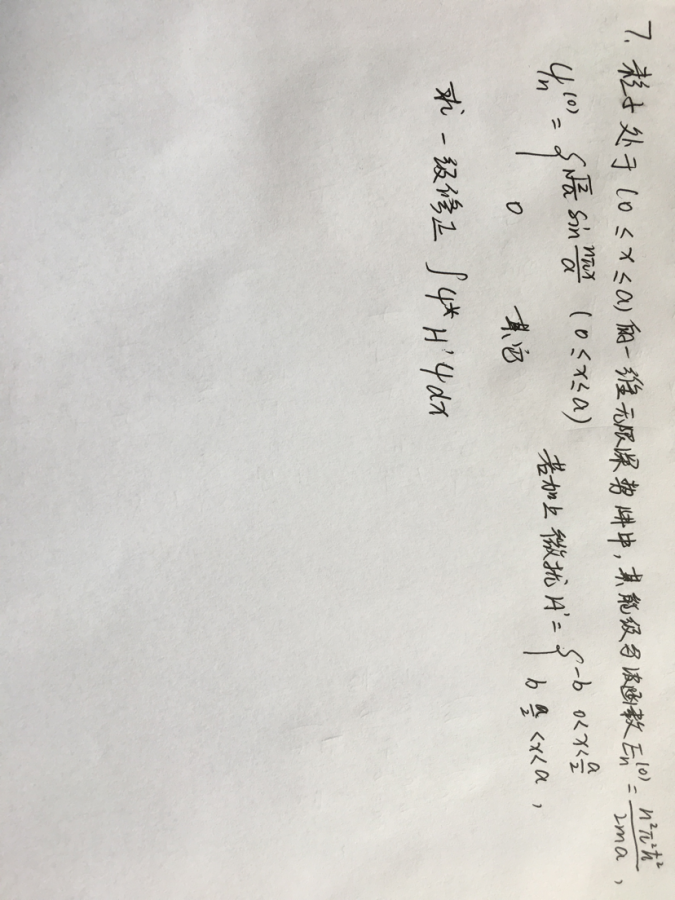 7. 粒子处于(0≤x≤a)的一维无限深势阱中,其能级与波函数 Eₙ⁽⁰⁾ = n²π²ħ²/2ma ,
ψₙ⁽⁰⁾ = { √(2/a) sin nπx/a (0≤x≤a) 若加上微扰 H' = { -b 0<x<a/2
0 其它 b a/2<x<a ,
求一级修正 ∫ψ*H'ψdx